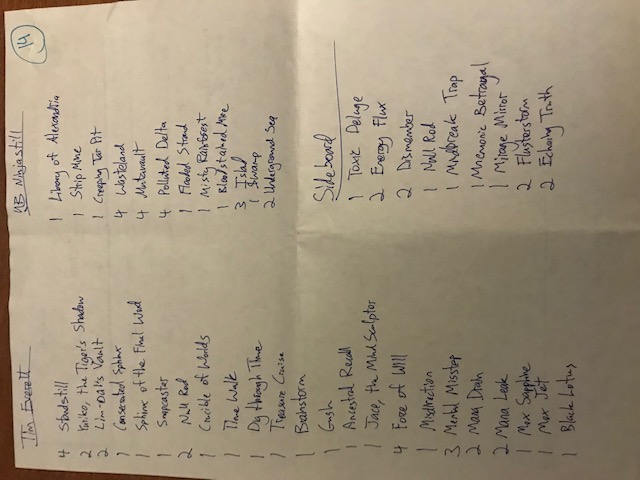 Tim Everett
4 Standstill
2 Yuriko, the Tiger's Shadow
2 Lim-Dul's Vault
1 Consecrated Sphinx
1 Sphinx of the Final Word
1 Snapcaster
2 Null Rod
1 Crucible of Worlds
1 Time Walk
1 Dig Through Time
1 Treasure Cruise
1 Brainstorm
1 Gush
1 Ancestral Recall
1 Jace, the Mind Sculptor
4 Force of Will
1 Misdirection
3 Mental Misstep
2 Mana Drain
2 Mana Leak
1 Mox Sapphire
1 Mox Jet
1 Black Lotus
UB Ninjastill
14
1 Library of Alexandria
1 Strip Mine
1 Creeping Tar Pit
4 Wasteland
4 Mutavault
4 Polluted Delta
1 Flooded Strand
1 Misty Rainforest
1 Bloodstained Mire
3 Island
1 Swamp
2 Underground Sea
Sideboard
1 Toxic Deluge
2 Energy Flux
2 Dismember
1 Null Rod
1 Mindbreak Trap
1 Mnemonic Betrayal
1 Mirage Mirror
2 Flusterstorm
2 Echoing Truth